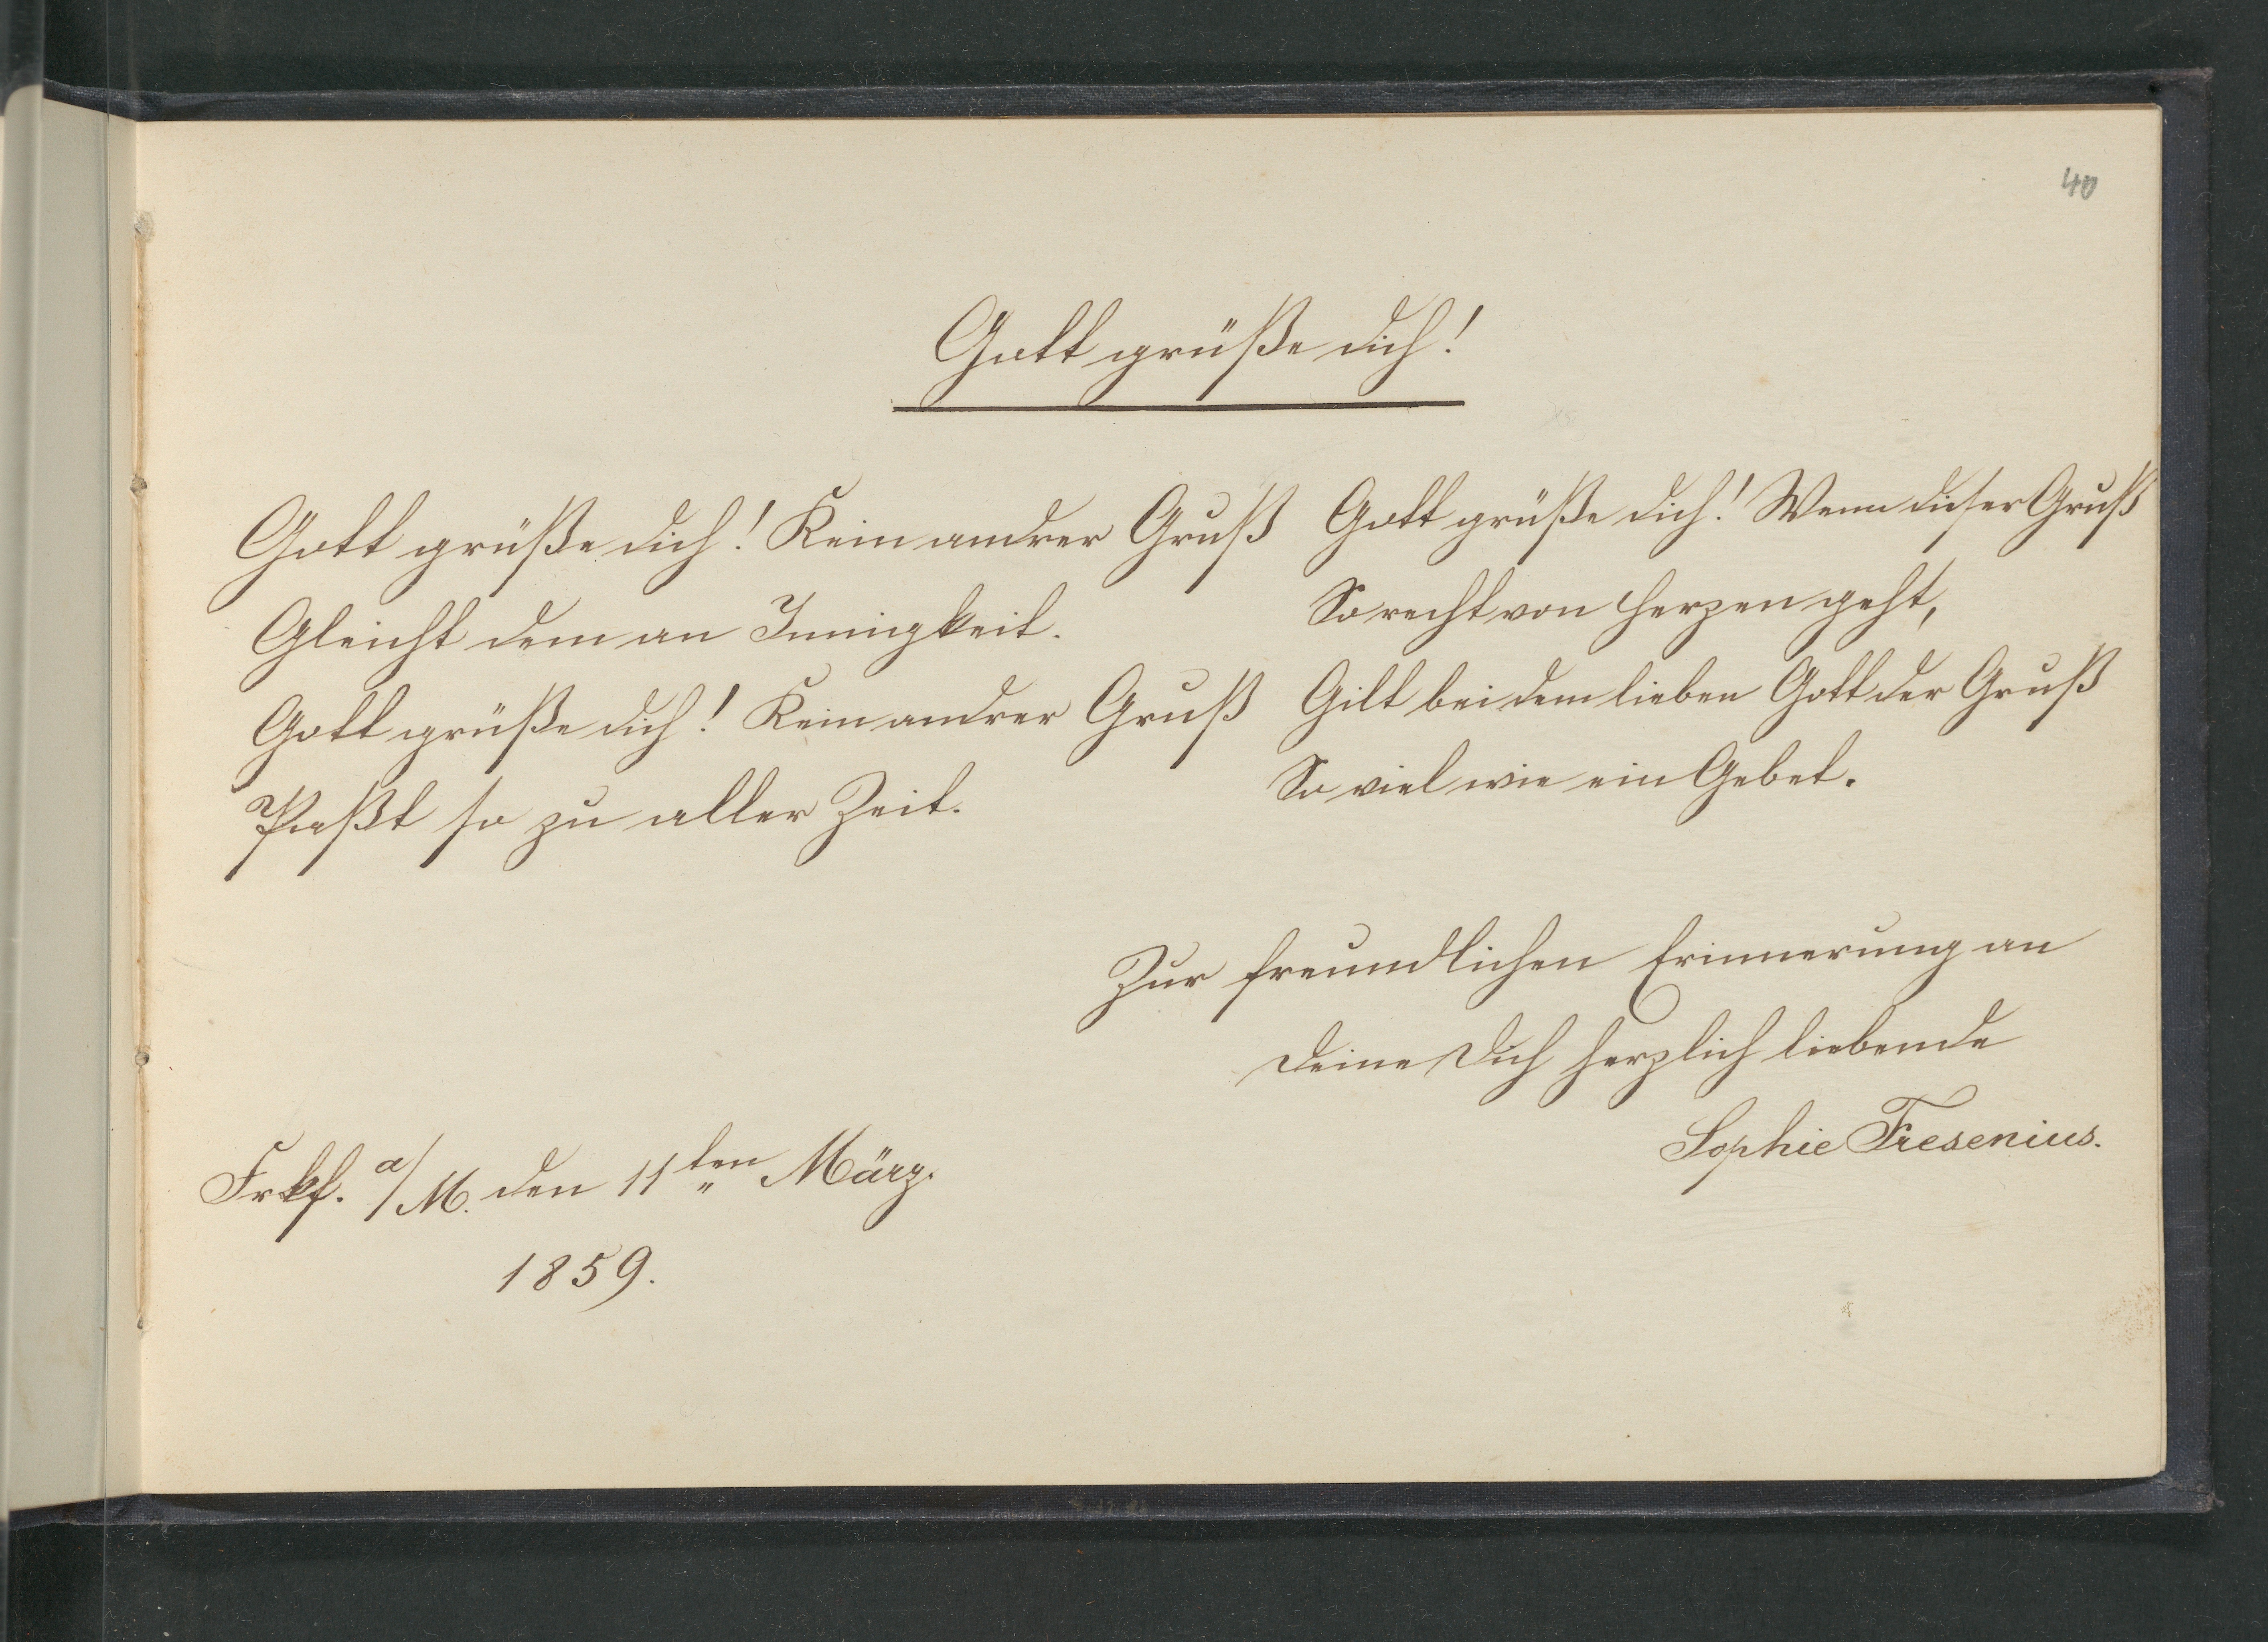 40
Gott grüße dich!
Gott grüße dich! Kein andrer Gruß
Gleicht dem an Innigkeit.
Gott grüße dich! Kein andrer Gruß
Paßt so zu aller Zeit.
Gott grüße dich! Wenn dieser Gruß
So recht von Herzen geht,
Gilt bei dem lieben Gott der Gruß
So viel wie ein Gebet.
Zur freundlichen Erinnerung an
Deine Dich herzlich liebende
Sophie Fresenius.
Frkf. a/M. den 11ten März.
1859.